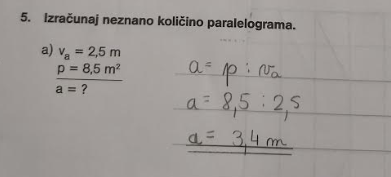 5. Izračunaj neznano količino paralelograma.
a) vₐ = 2,5 m
p = 8,5 m²
a = ?
a = p : vₐ
a = 8,5 : 2,5
a = 3,4 m